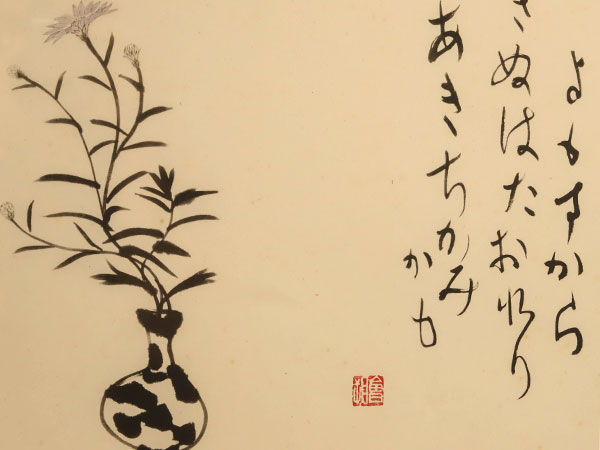 よもすから
ぬはたおれり
あきちかみ
かも